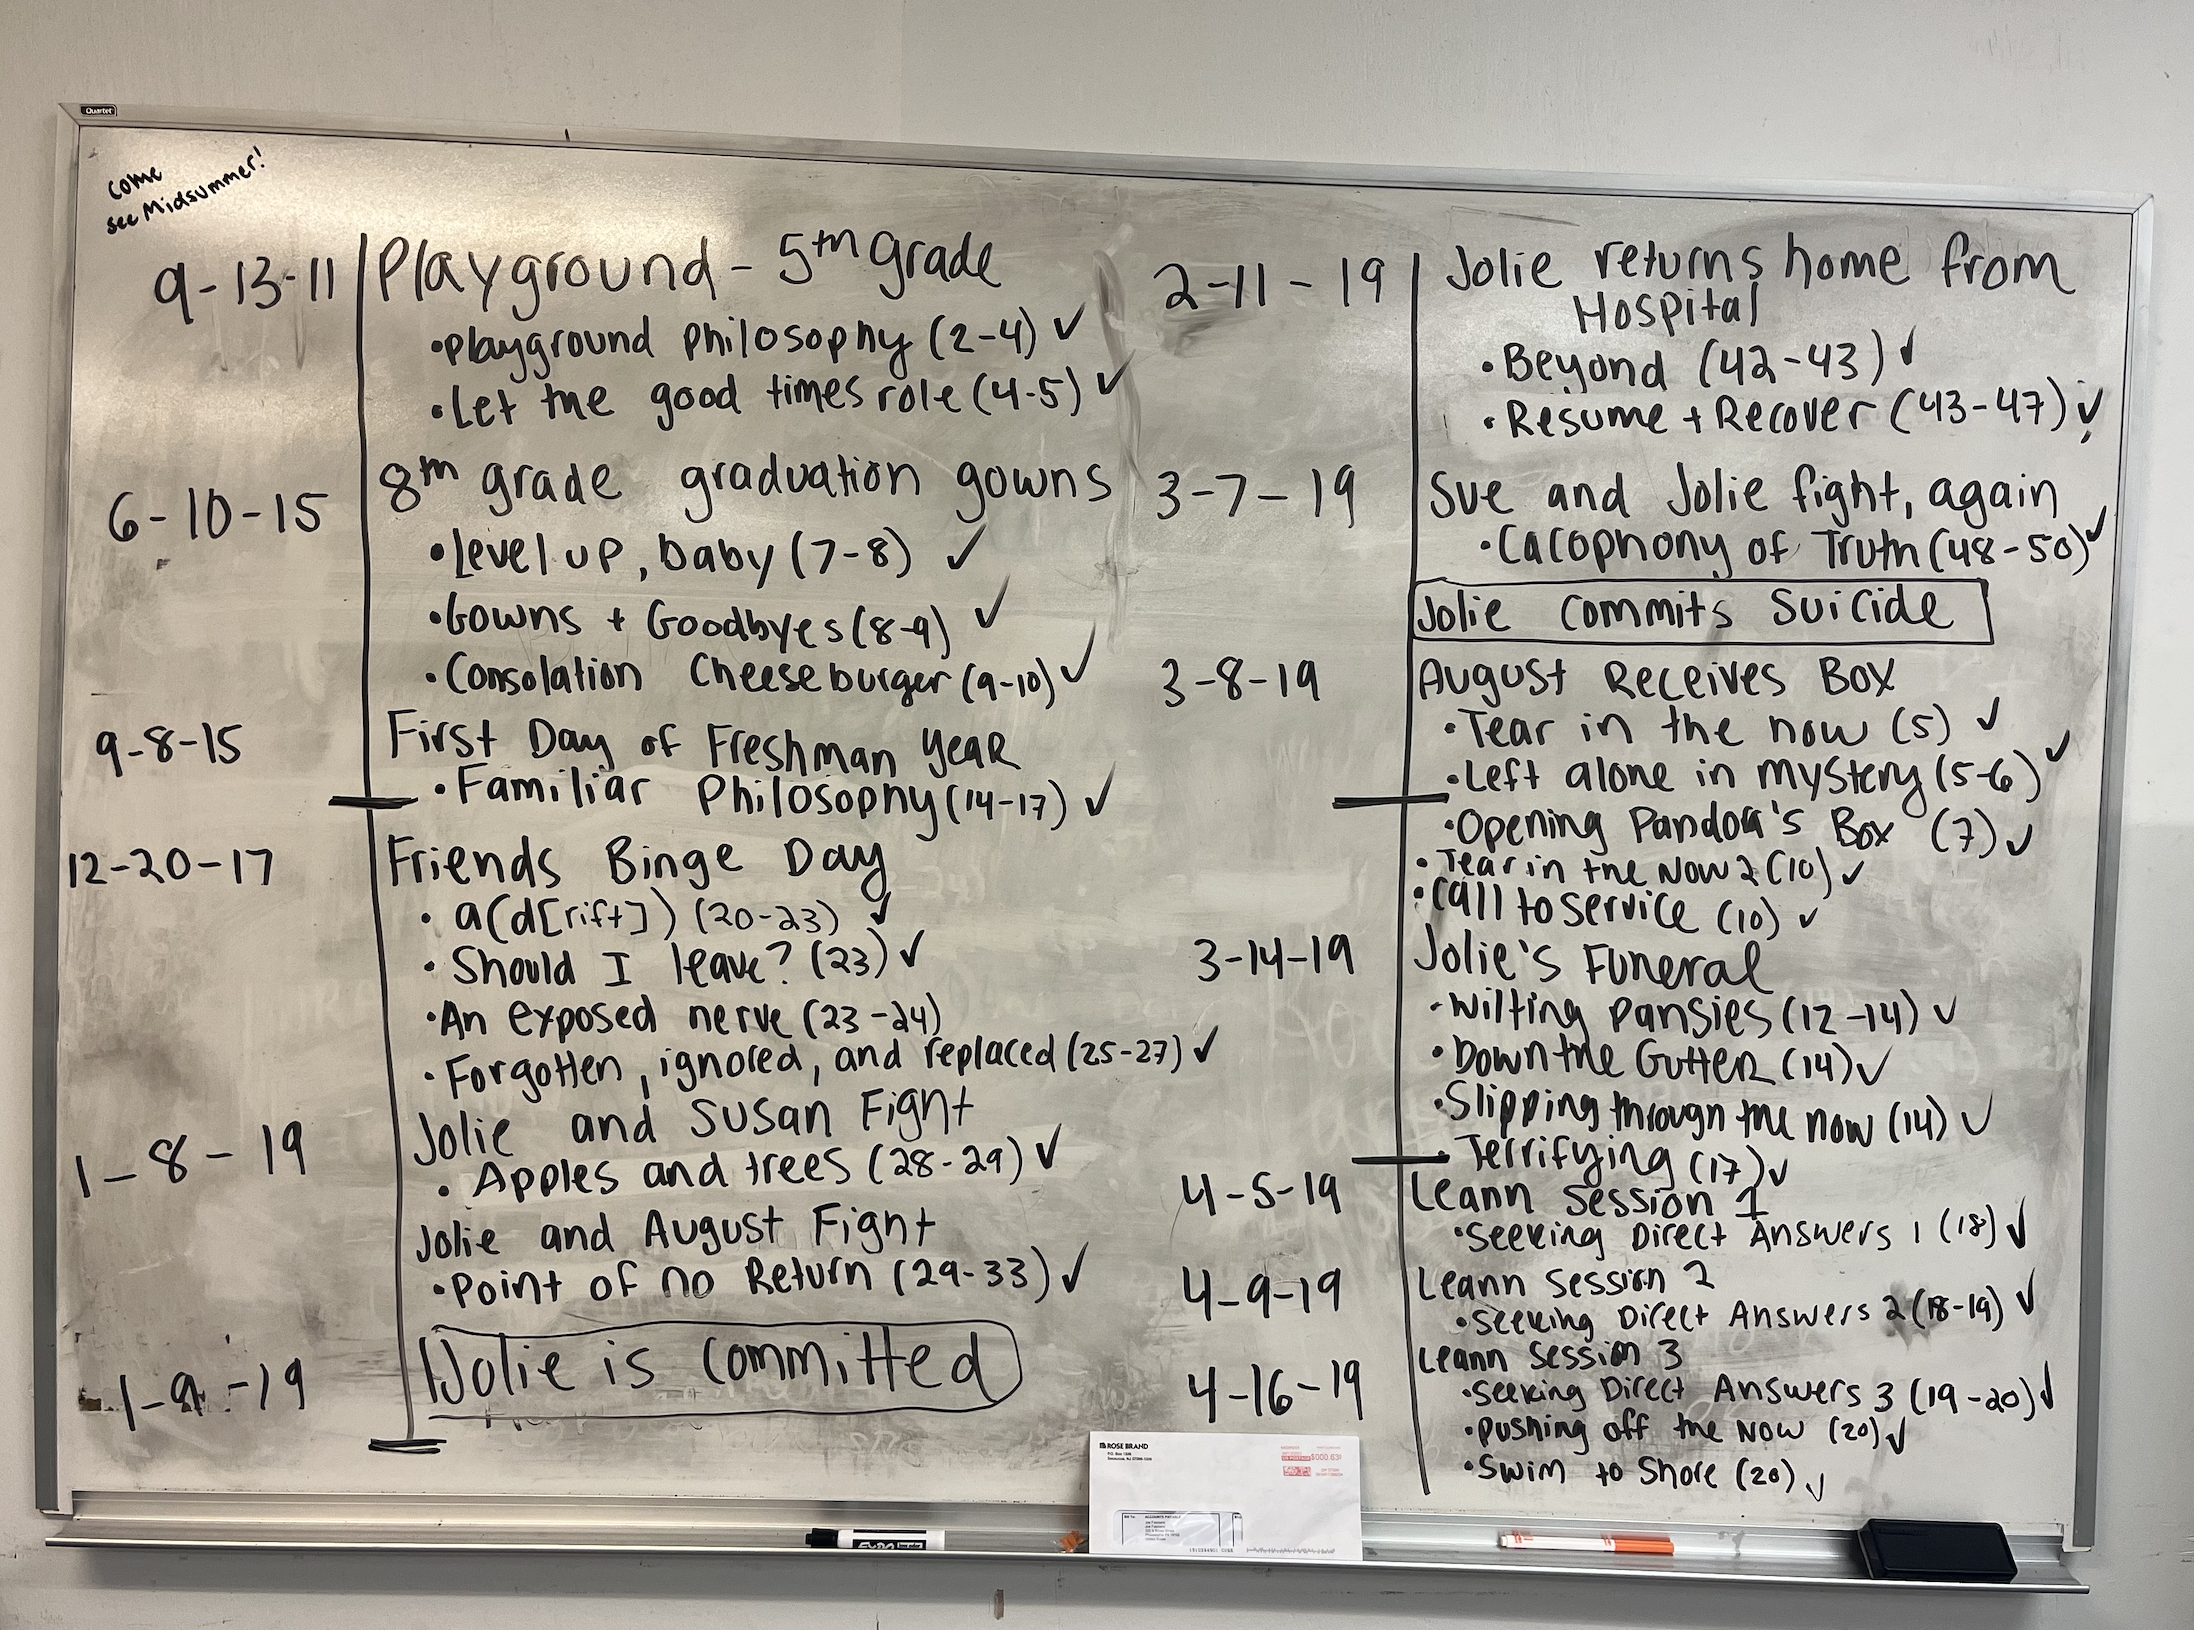 Quartet
come
see Midsummer!
9-13-11
Playground - 5th grade
•Playground philosophy (2-4) ✓
•Let the good times role (4-5) ✓
6-10-15
8th grade graduation gowns
•Level up, baby (7-8) ✓
•Gowns + Goodbyes (8-9) ✓
•Consolation Cheeseburger (9-10) ✓
9-8-15
First Day of Freshman Year
•Familiar Philosophy (14-17) ✓
12-20-17
Friends Binge Day
•a(d[rift]) (20-23) ✓
•Should I leave? (23) ✓
•An exposed nerve (23-24)
•Forgotten, ignored, and replaced (25-27) ✓
1-8-19
Jolie and Susan Fight
•Apples and trees (28-29) ✓
Jolie and August Fight
•Point of no Return (29-33) ✓
1-9-19
Jolie is committed
2-11-19
Jolie returns home from
Hospital
•Beyond (42-43) ✓
•Resume + Recover (43-47) ✓
3-7-19
Sue and Jolie fight, again
•Cacophony of Truth (48-50) ✓
Jolie commits suicide
3-8-19
August Receives Box
•Tear in the now (5) ✓
•Left alone in mystery (5-6) ✓
•Opening Pandora's Box (7) ✓
•Tear in the Now 2 (10) ✓
•Call to service (10) ✓
3-14-19
Jolie's Funeral
•Wilting Pansies (12-14) ✓
•Down the Gutter (14) ✓
•Slipping through the now (14) ✓
•Terrifying (17) ✓
4-5-19
Leann Session 1
•Seeking Direct Answers 1 (18) ✓
4-9-19
Leann Session 2
•Seeking Direct Answers 2 (18-19) ✓
4-16-19
Leann Session 3
•Seeking Direct Answers 3 (19-20) ✓
•Pushing off the Now (20) ✓
•Swim to Shore (20) ✓
ROSE BRAND
$000.63
EXPO